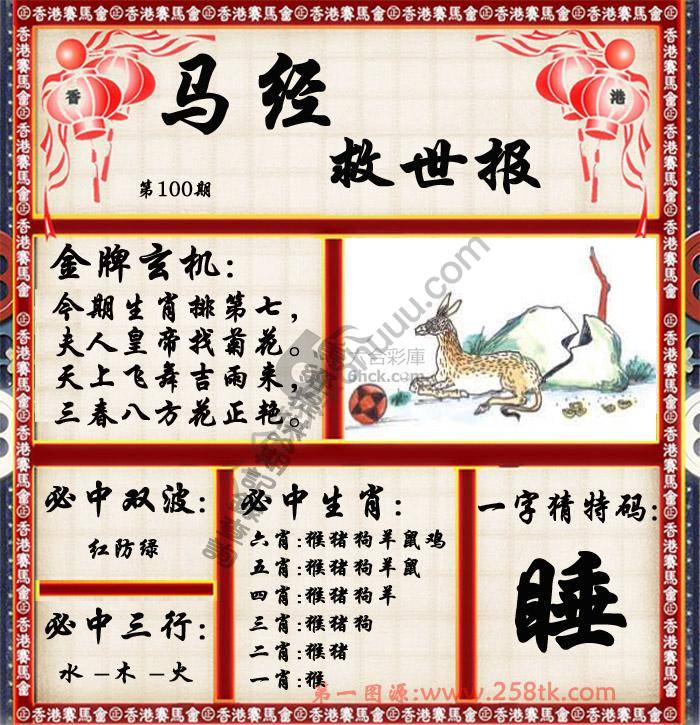 香港賽馬會㊣香港賽馬會㊣香港賽馬會㊣香港賽馬會㊣香港賽馬會㊣香港賽馬會
香
港
马经
救世报
第100期
金牌玄机:
今期生肖排第七,
夫人皇帝找菊花。
天上飞舞吉雨来,
三春八方花正艳。
六合彩庫
6hck.com
必中双波:
红防绿
必中三行:
水－木－火
必中生肖:
六肖:猴猪狗羊鼠鸡
五肖:猴猪狗羊鼠
四肖:猴猪狗羊
三肖:猴猪狗
二肖:猴猪
一肖:猴
一字猜特码:
睡
第一图源:www.258tk.com